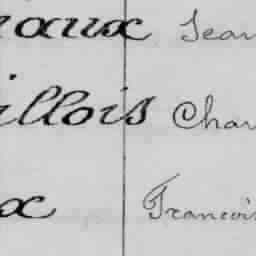 raux Jean
illois Char
x Francois